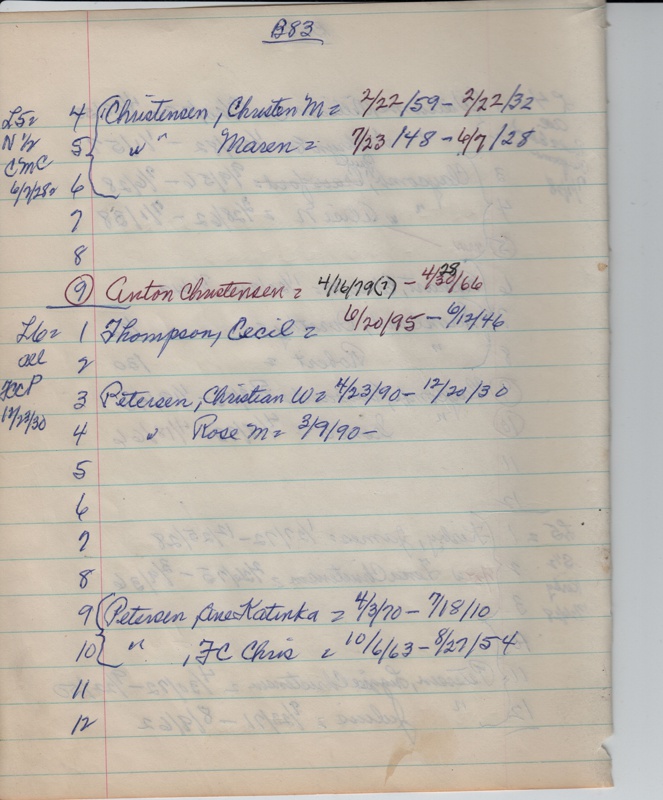 B83
L5= 4 Christensen, Christen M = 2/22/59 - 2/22/32
N 1/2 5 " " Maren = 7/23/48 - 6/7/28
CMC
6/7/28= 6
7
8
9 Anton Christensen = 4/16/79(?) - 4/28/66
L6= 1 Thompson, Cecil = 6/20/95 - 6/12/46
all 2
FCP 3 Petersen, Christian W = 4/23/90 - 12/20/30
12/23/30 4 " Rose M = 3/9/90 -
5
6
7
8
9 Petersen Ane Katinka = 4/3/70 - 7/18/10
10 " , FC Chris = 10/6/63 - 8/27/54
11
12